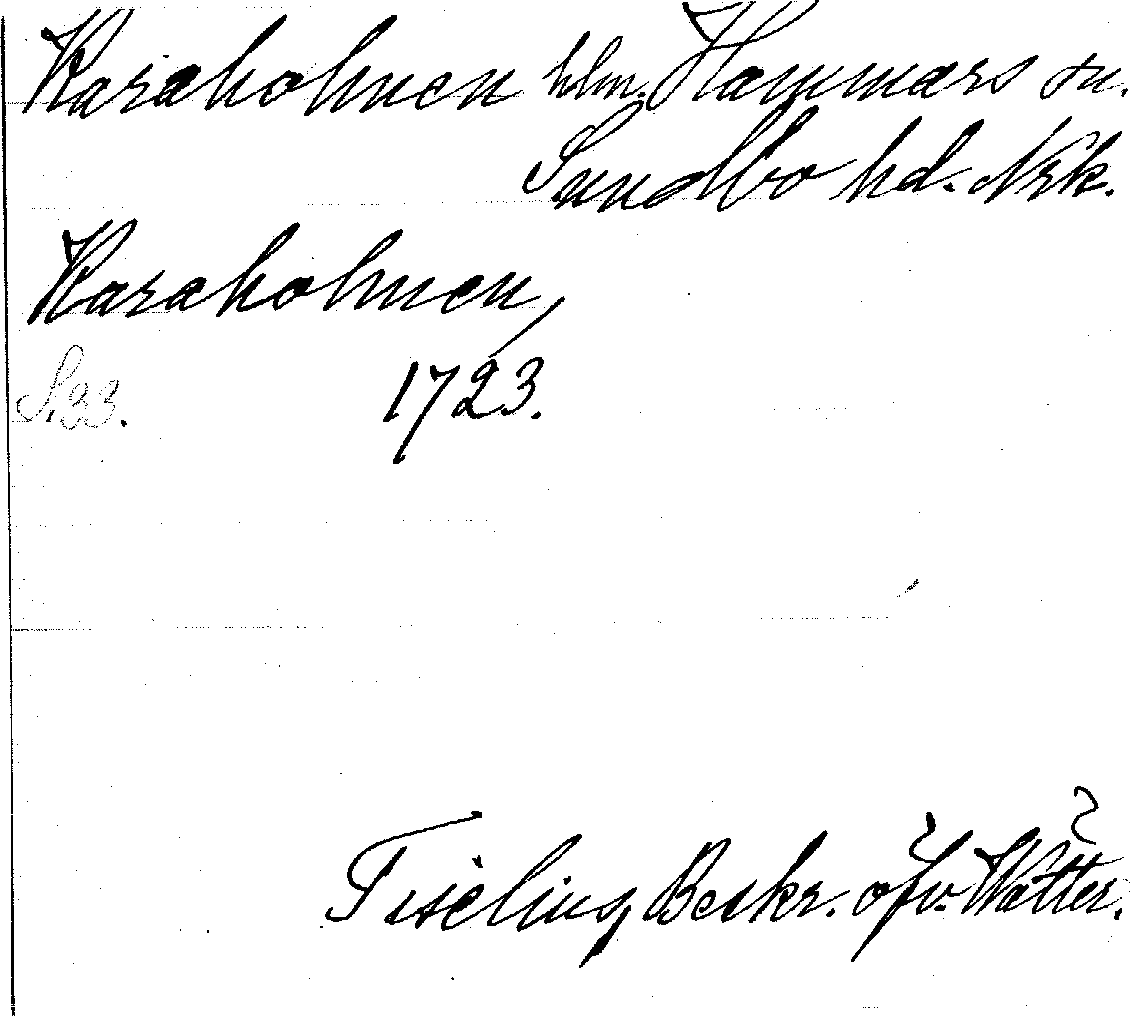 Karaholmen hlm. Hammars sn.
Sundbo hd. Nrk.
Karaholmen,
S.33. 1723.
Tiselius, Beskr. öfv. Wätter.